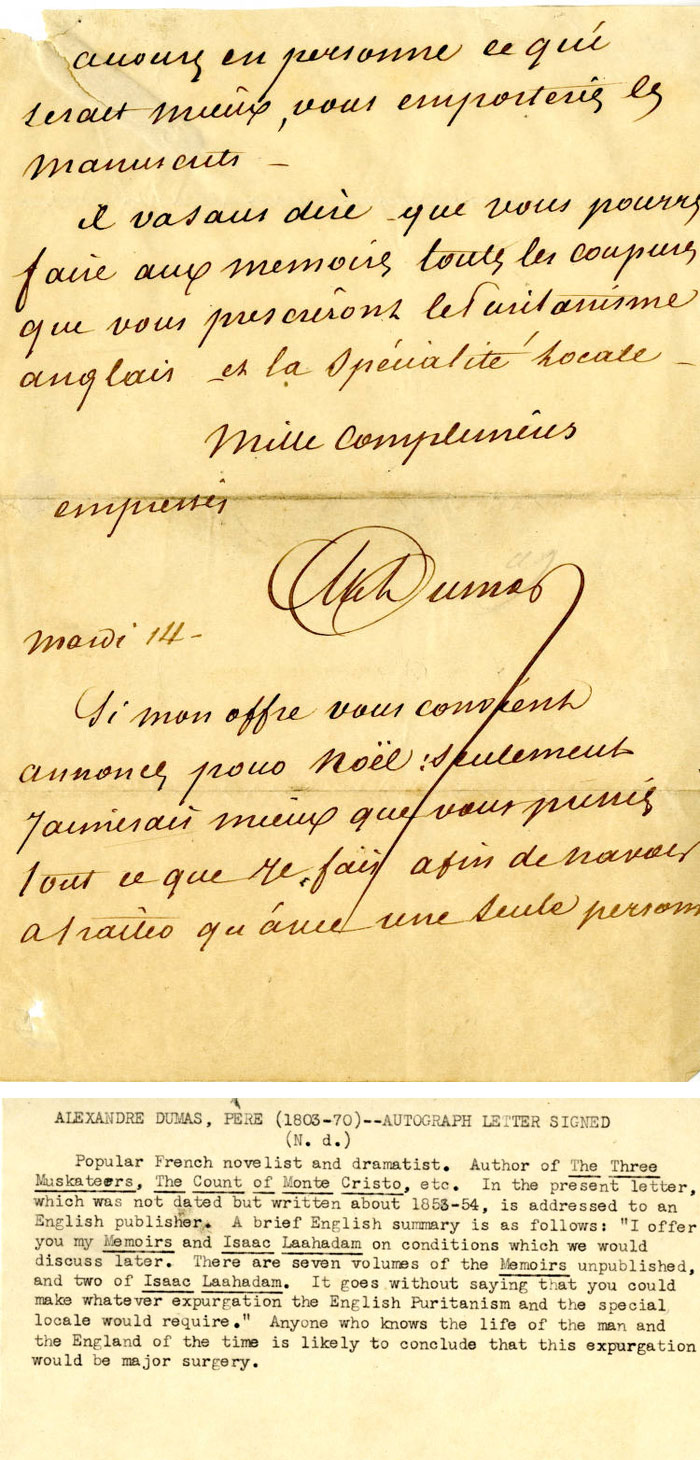 en personne ce qui
serait mieux, vous emporteriez les
manuscrits -
il va sans dire que vous pourrez
faire aux memoires toutes les coupures
que vous prescriront le Puritanisme
anglais et la Spécialité locale -
Mille compliments
empressés
Alex Dumas
mardi 14 -
Si mon offre vous convient
annoncez pour Noël : seulement
J'aimerais mieux que vous prissiez
tout ce que Je fais afin de n'avoir
a traiter qu'avec une seule personne
ALEXANDRE DUMAS, PERE (1803-70)--AUTOGRAPH LETTER SIGNED
(N. d.)
Popular French novelist and dramatist. Author of The Three
Muskateers, The Count of Monte Cristo, etc. In the present letter,
which was not dated but written about 1853-54, is addressed to an
English publisher. A brief English summary is as follows: "I offer
you my Memoirs and Isaac Laahadam on conditions which we would
discuss later. There are seven volumes of the Memoirs unpublished,
and two of Isaac Laahadam. It goes without saying that you could
make whatever expurgation the English Puritanism and the special
locale would require." Anyone who knows the life of the man and
the England of the time is likely to conclude that this expurgation
would be major surgery.